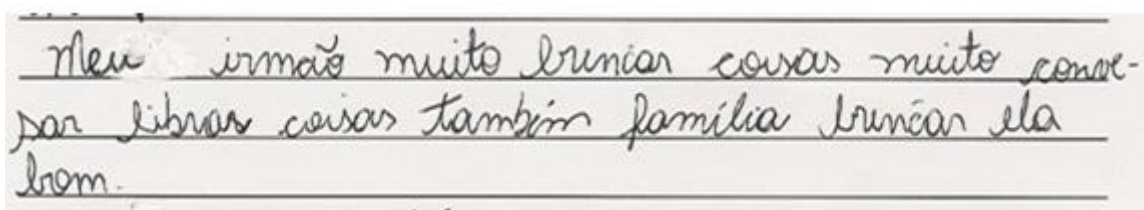 Meu irmão muito brincar coisas muito conve-
sar libras coisas também família brincar ela
bom.